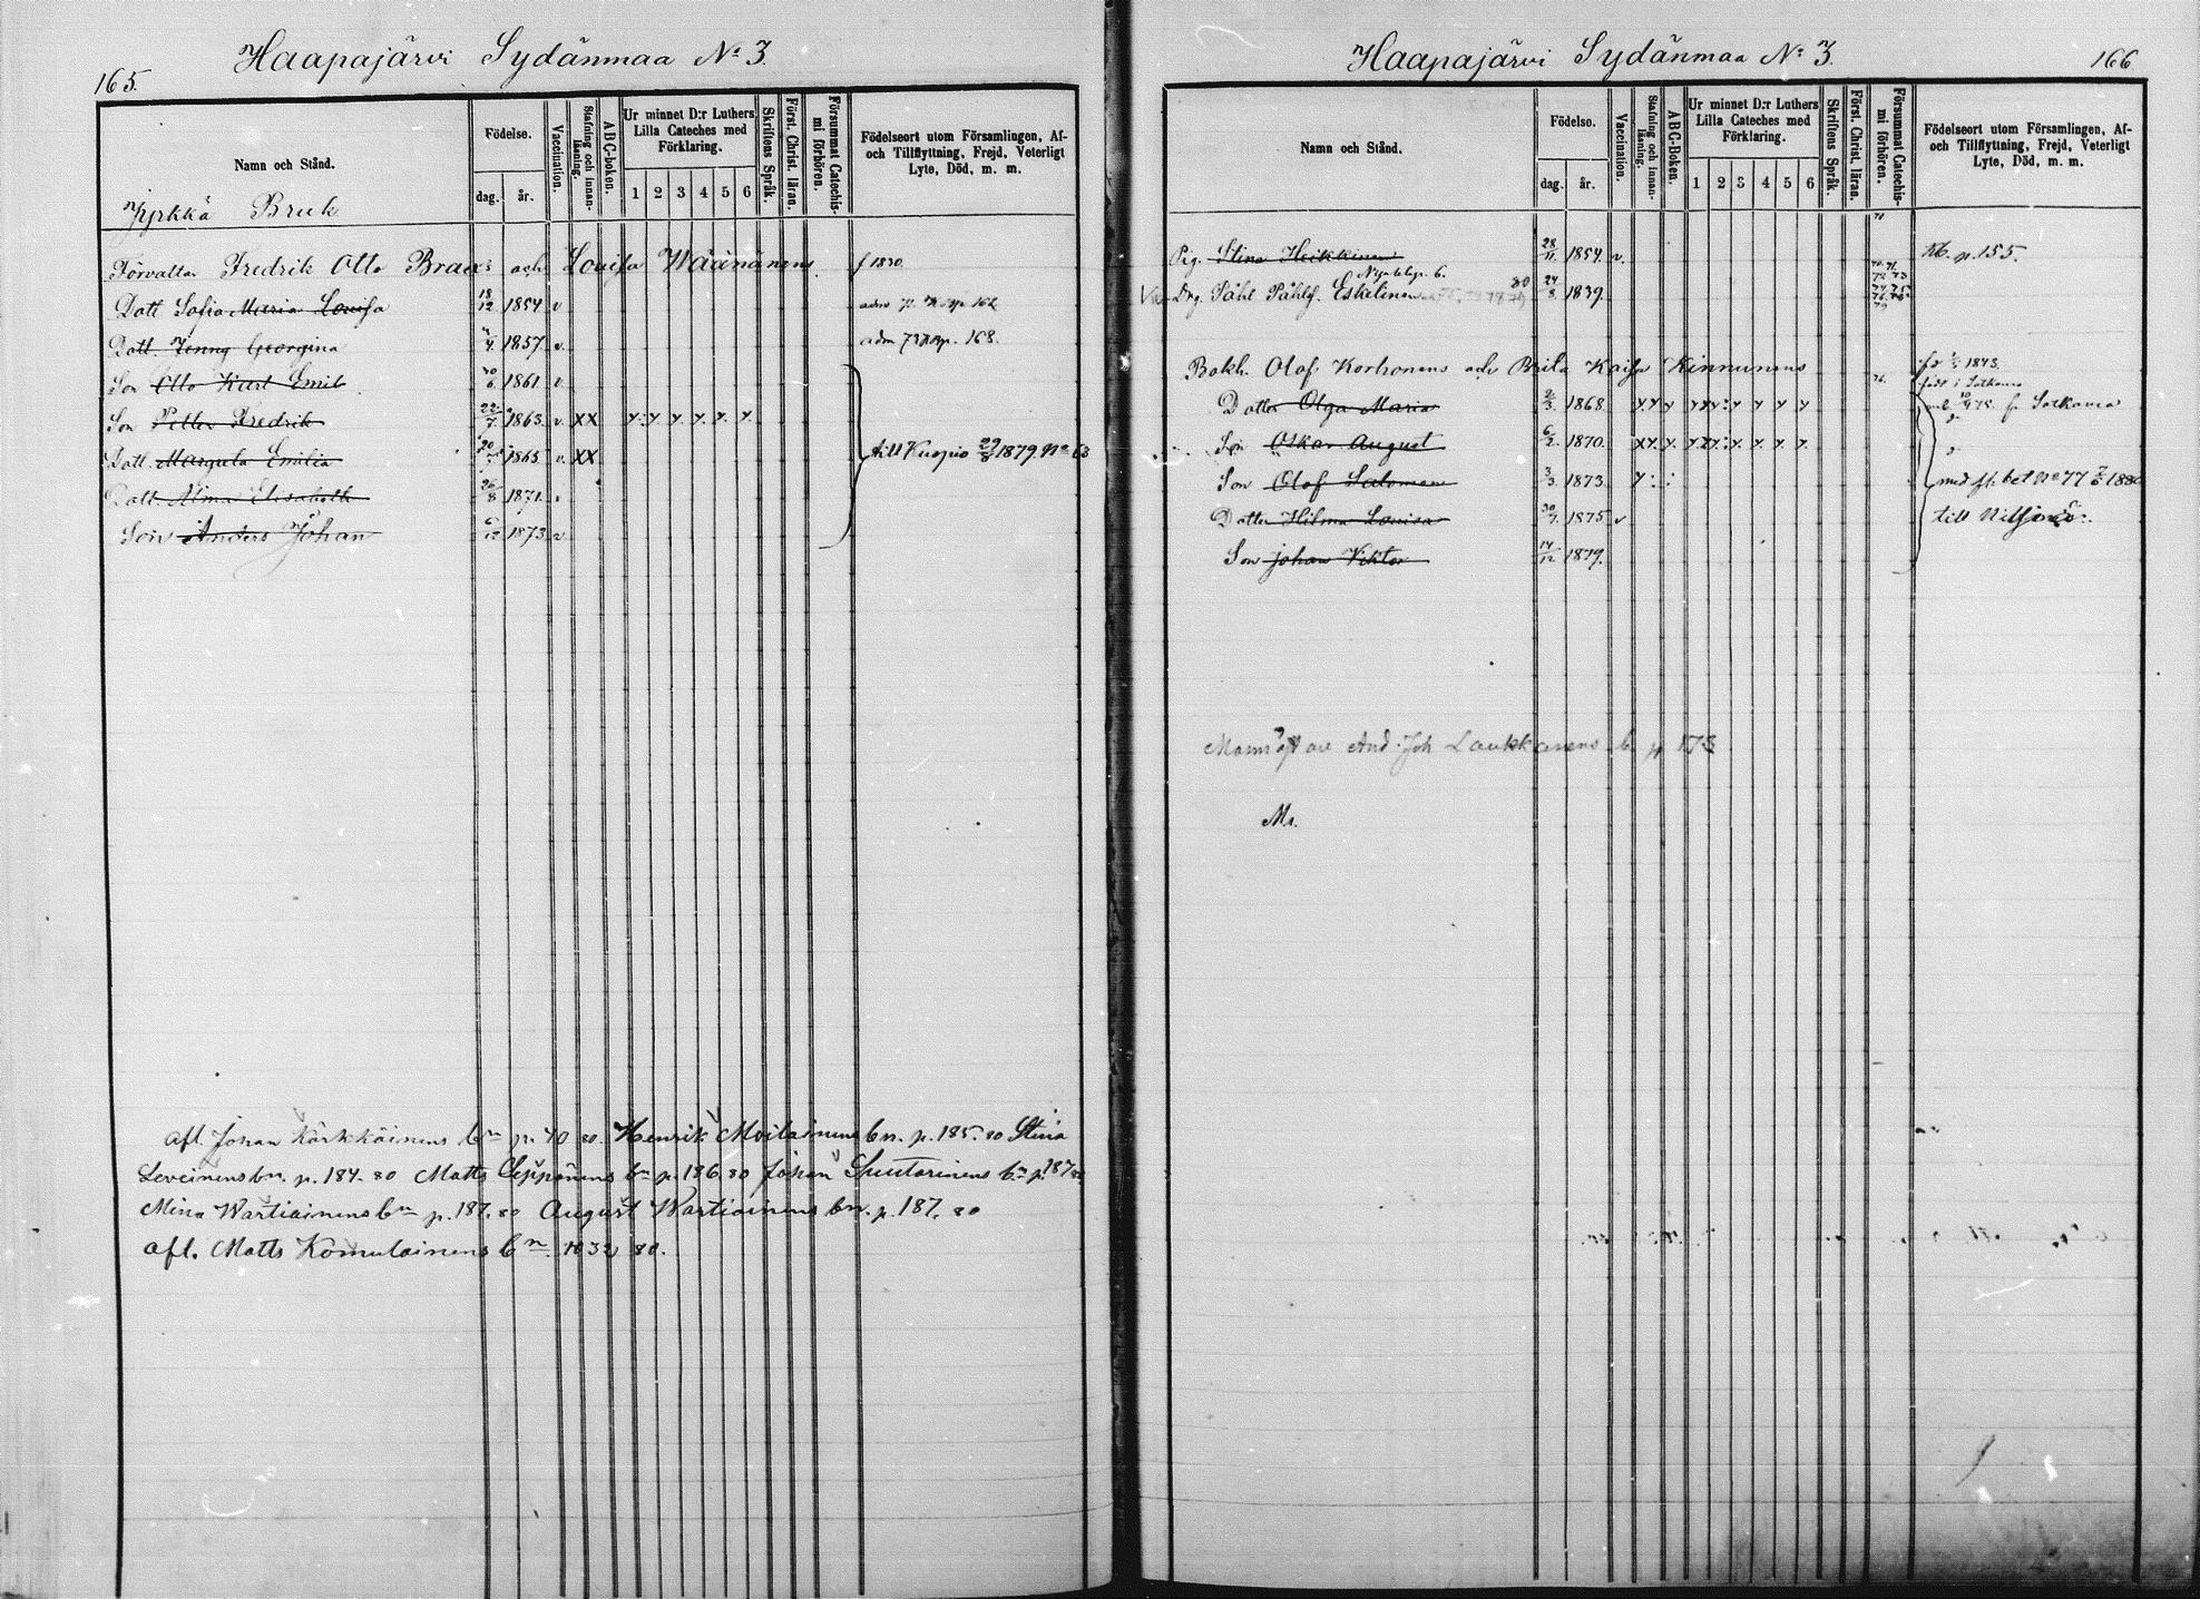 165.
Haapajärvi Sydänmaa No 3.
Namn och Stånd.
Födelse.
dag. år.
Vaccination.
Stafning och innan-läsning.
ABC-boken.
Ur minnet D:r Luthers
Lilla Cateches med
Förklaring.
1 2 3 4 5 6
Skriftens Språk.
Först. Christ. läran.
Försummat Catechis-mi förhören.
Födelseort utom Församlingen, Af-
och Tillflyttning, Frejd, Veterligt
Lyte, Död, m. m.
Jyrkkä Bruk
Förvaltar Fredrik Otto och Louisa Wäänänens. f 1830.
Dott Sofia Maria Lovisa 18/12 1854 v
Dott. Jenny Georgina 1857. v. 168.
Son Otto Karl Emil 1861 v
Son Petter Fredrik 22/7 1863. v XX
Dott. Margreta Emilia 1865 v. XX till Kuopio 29/8 1879. No 63
Dott. Alma Elisabeth 26/8 1871.
Son Anders Johan 1873 v
afl. Johan Kärkkäinens bn p. 70 80. Henrik Moilainens bn. p. 185. 80 Stina
Leveinens bn. p. 184. 80 Matts Sepponens bn p. 186. 80 Johan Suutarinens bn p. 187 80
Mina Wartiainens bn p. 187. 80 August Wartiainens bn. p. 187. 80
afl. Matts Komulainens bn. 80.
Haapajärvi Sydänmaa No 3.
166
Namn och Stånd.
Födelse.
dag. år.
Vaccination.
Stafning och innan-läsning.
ABC-Boken.
Ur minnet D:r Luthers
Lilla Cateches med
Förklaring.
1 2 3 4 5 6
Skriftens Språk.
Först. Christ. läran.
Försummat Catechis-mi förhören.
Födelseort utom Församlingen, Af-
och Tillflyttning, Frejd, Veterligt
Lyte, Död, m. m.
Pig. Stina Heikkinen 28/11 1854. v. p. 155.
Drg. Påhl Påhlsf. Eskelinen 80 24/8 1839.
Bokh. Olof Korhonens och Brita Kaisa Kinnunens 1843.
Dotter Olga Maria 2/3 1868. fr Sotkamo
Son Oskar August 6/2 1870.
Son Olof Salomon 3/3 1873 med fl. bet No 77 1880
Dotter Hilma Lovisa 30/7 1875 v till Nilsiä.
Son Johan Viktor 14/12 1879.
And. Joh Laukkanens b. p 173